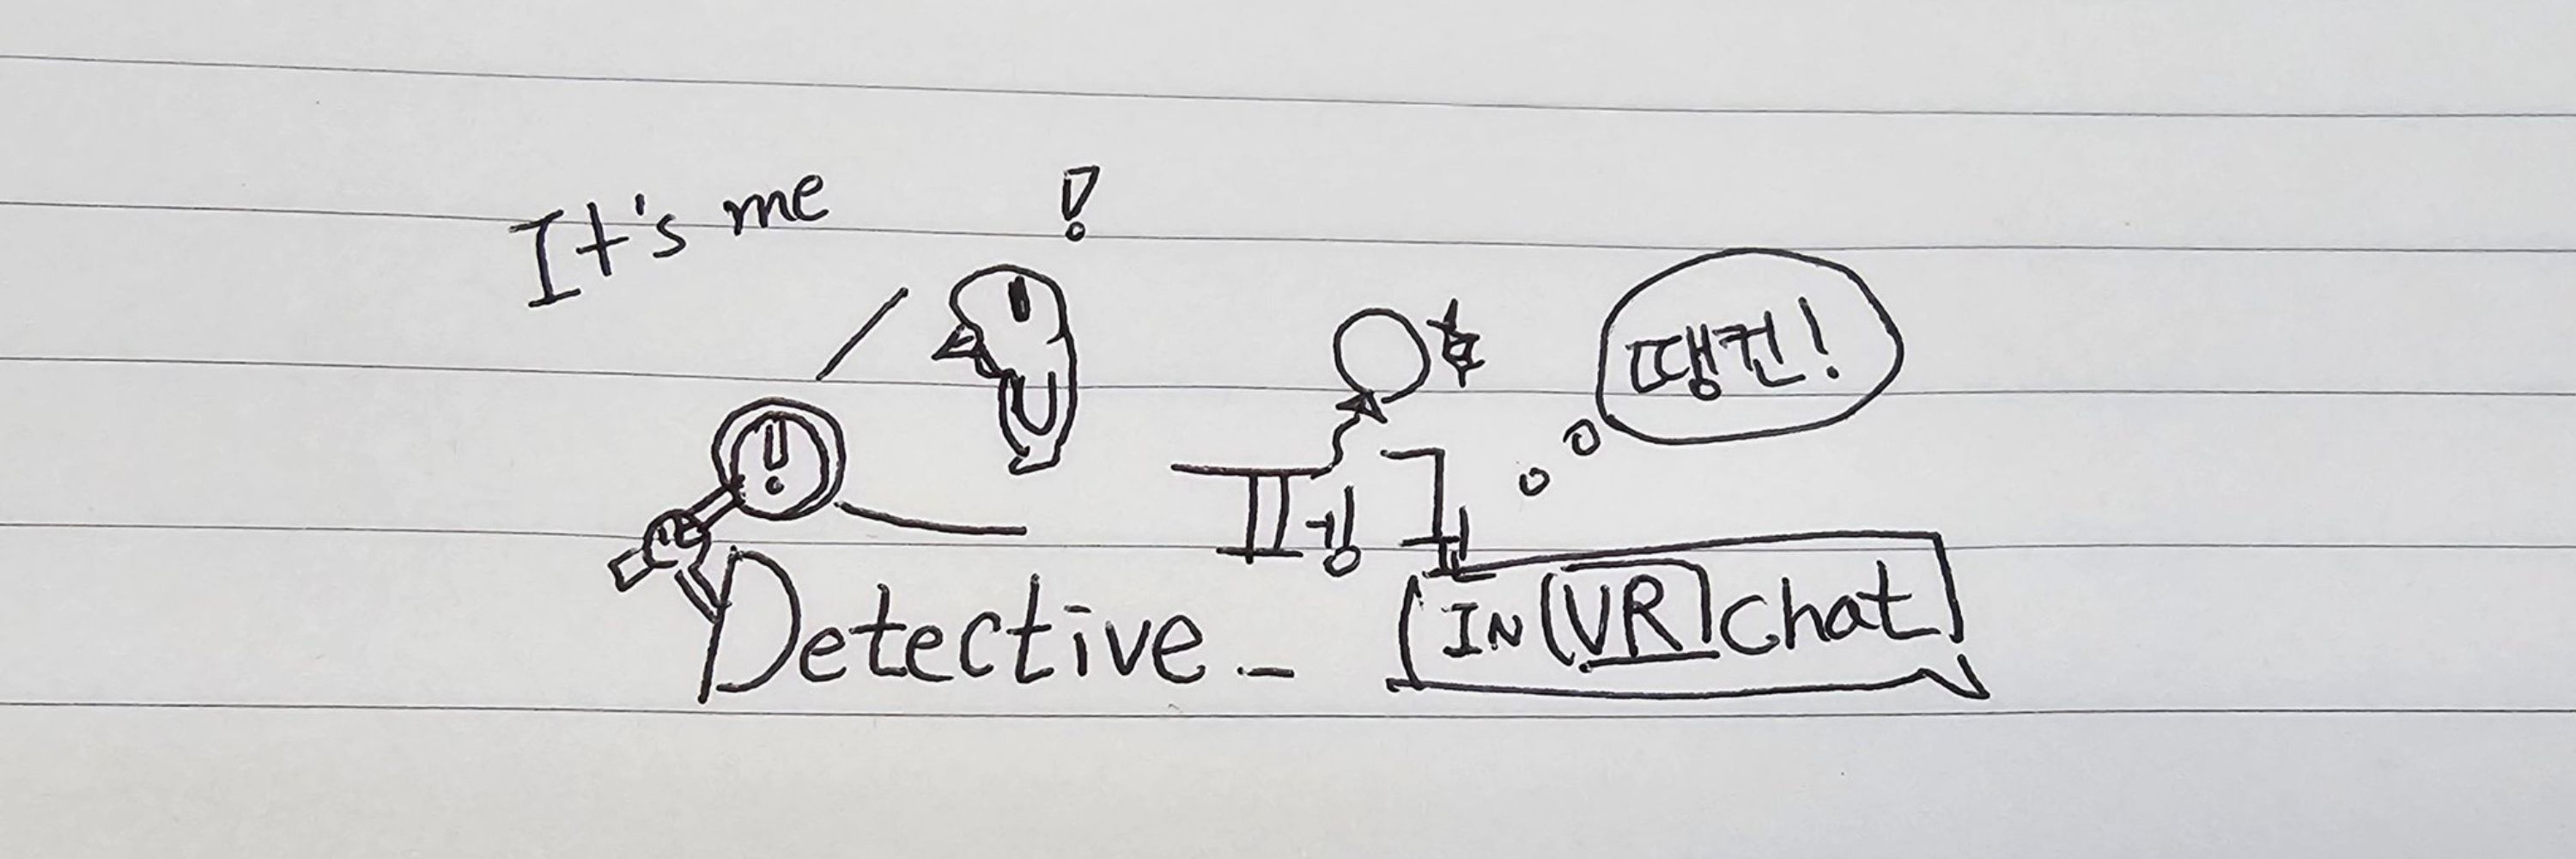 It's me
!
!
Detective -
IN VR chat